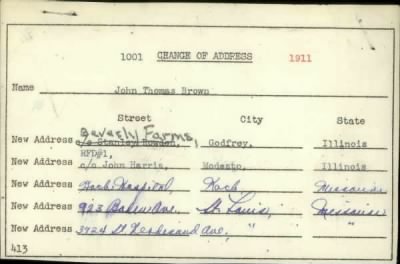 1001 CHANGE OF ADDRESS 1911
Name John Thomas Brown
Street City State
Beverly Farms,
New Address c/o Stanley Rowden, Godfrey, Illinois
RFD#1,
New Address c/o John Harris, Modesto, Illinois
New Address Koch Hospital, Koch Missouri
New Address 923 Ave. St. Louis, Missouri
New Address 3724 St Ferdinand Ave, " "
413